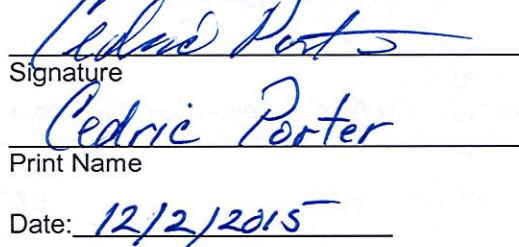 Cedric Porter
Signature
Cedric Porter
Print Name
Date: 12/2/2015